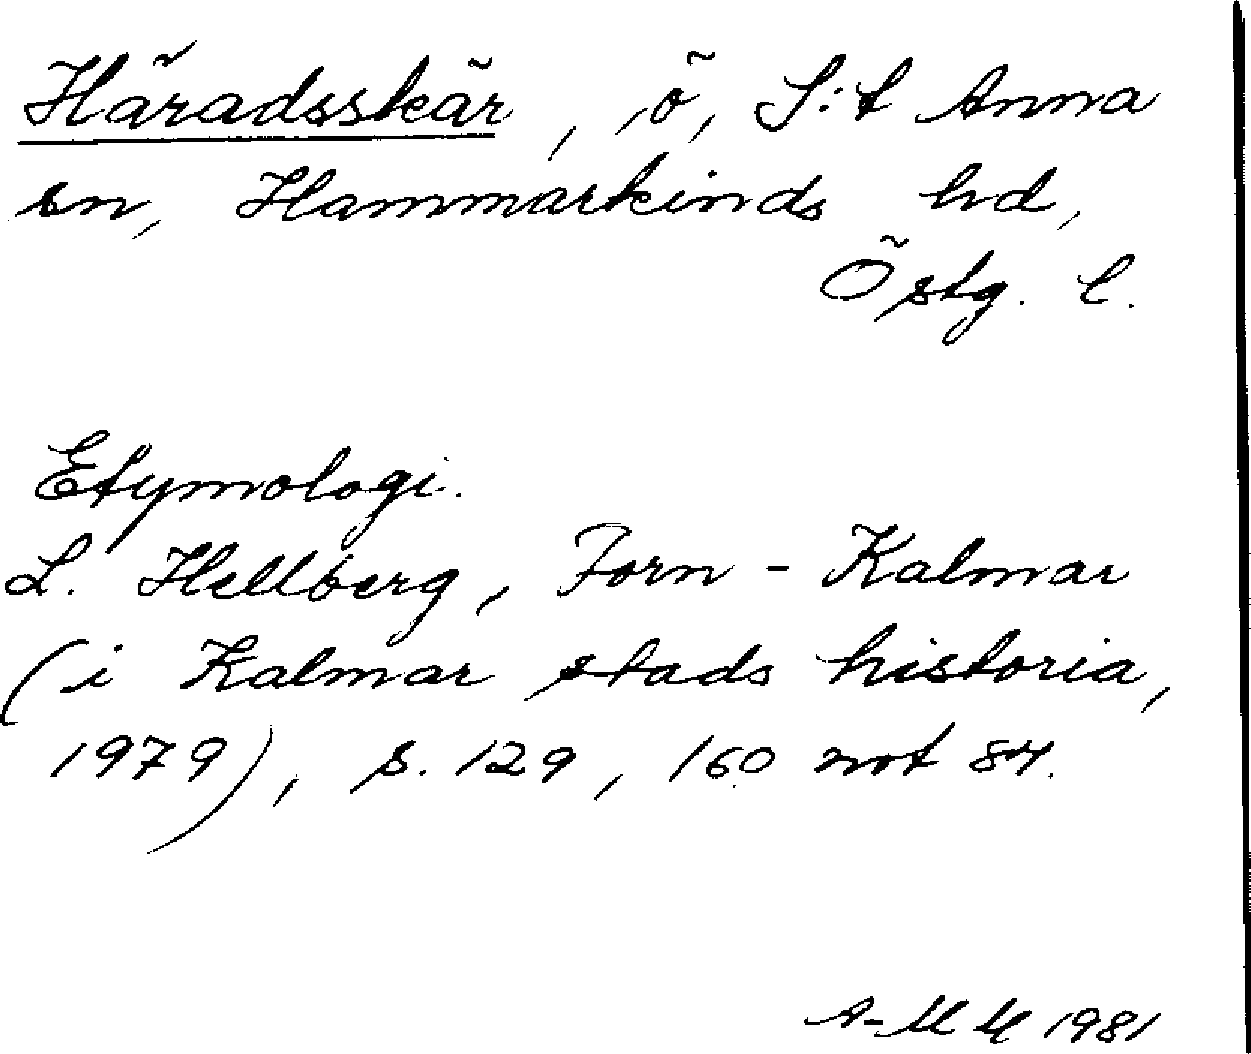 Häradsskär, ö, S:t Anna
sn, Hammarkinds hd,
Östg. l.
Etymologi.
L. Hellberg, Forn-Kalmar
(i Kalmar stads historia,
1979), s. 129, 160 not 84.
A-M M 1981